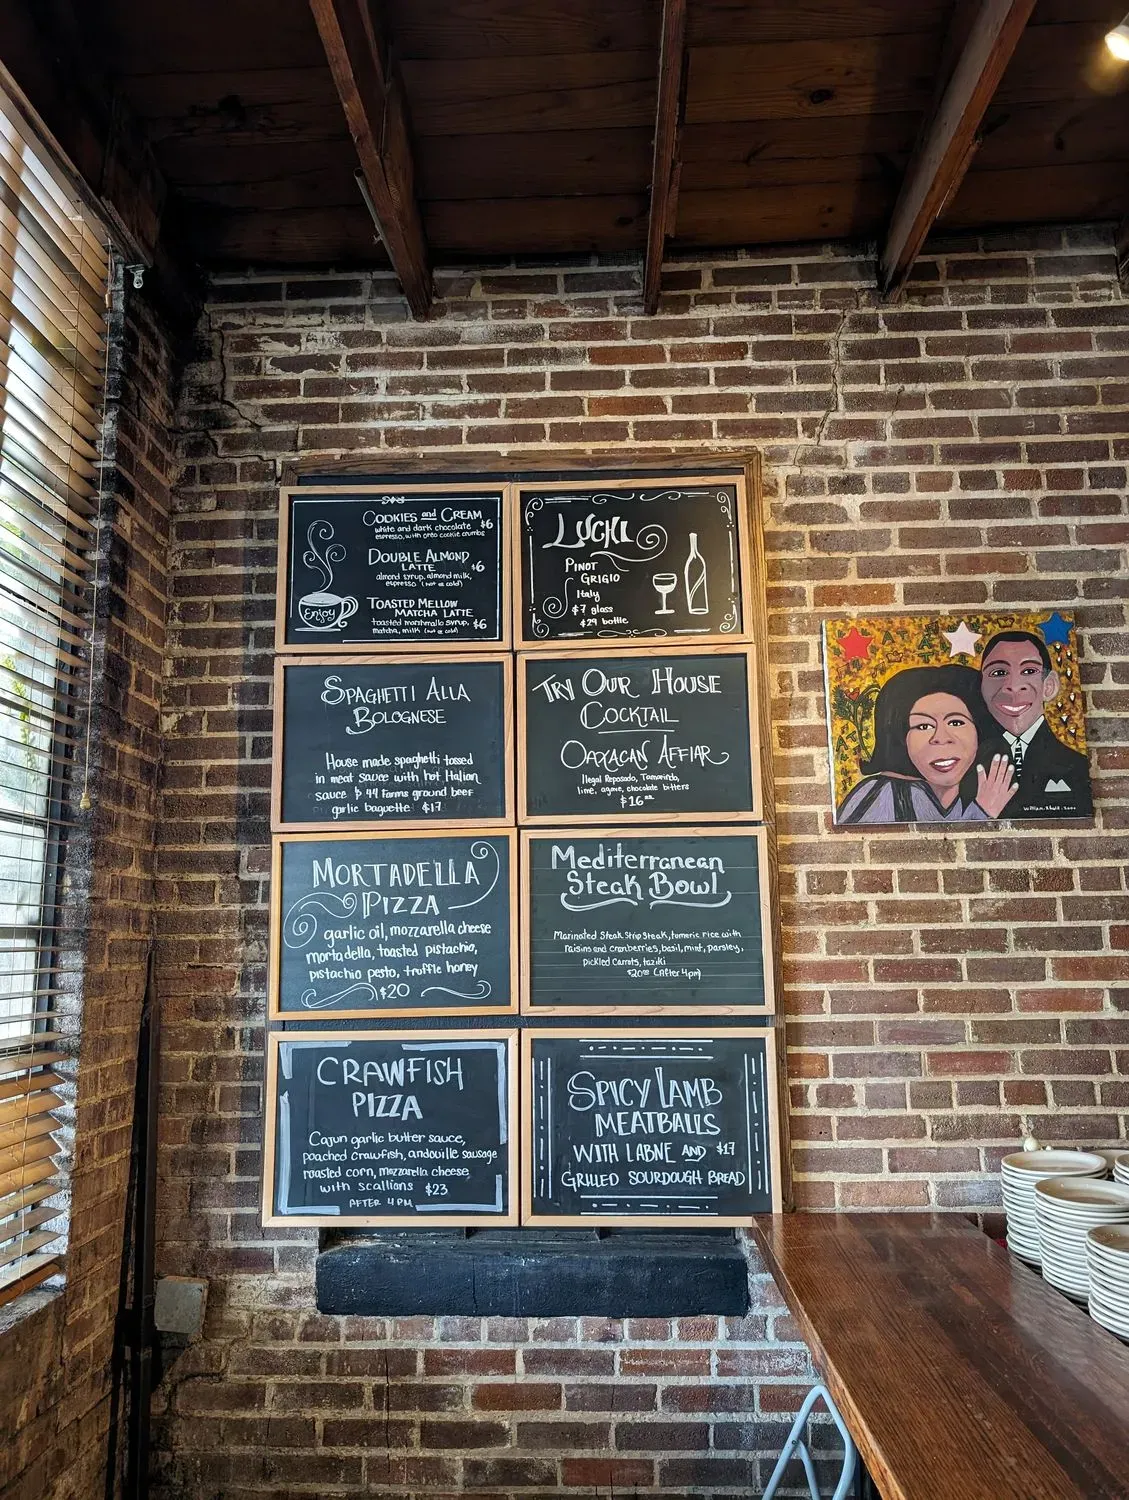 COOKIES and CREAM
white and dark chocolate $6
espresso, with oreo cookie crumbs
DOUBLE ALMOND
LATTE $6
almond syrup, almond milk,
espresso (hot or cold)
Enjoy
TOASTED MELLOW
MATCHA LATTE
toasted marshmallo syrup, $6
matcha, milk (hot or cold)
LUCHI
PINOT
GRIGIO
Italy
$7 glass
$29 bottle
SPAGHETTI ALLA
BOLOGNESE
House made spaghetti tossed
in meat sauce with hot Italian
sauce & 44 farms ground beef
garlic baguette $17
TRY OUR HOUSE
COCKTAIL
OAXACAN AFFIAR
Ilegal Reposado, Tamarindo,
lime, agave, chocolate bitters
$16
MORTADELLA
PIZZA
garlic oil, mozzarella cheese
mortadella, toasted pistachio,
pistachio pesto, truffle honey
$20
Mediterranean
Steak Bowl
Marinated Steak Strip Steak, tumeric rice with
raisins and cranberries, basil, mint, parsley,
pickled carrots, taziki
$20 (After 4pm)
CRAWFISH
PIZZA
Cajun garlic butter sauce,
poached crawfish, andouille sausage
roasted corn, mozzarella cheese
with scallions $23
AFTER 4 PM
SPICY LAMB
MEATBALLS
WITH LABNE AND $17
GRILLED SOURDOUGH BREAD